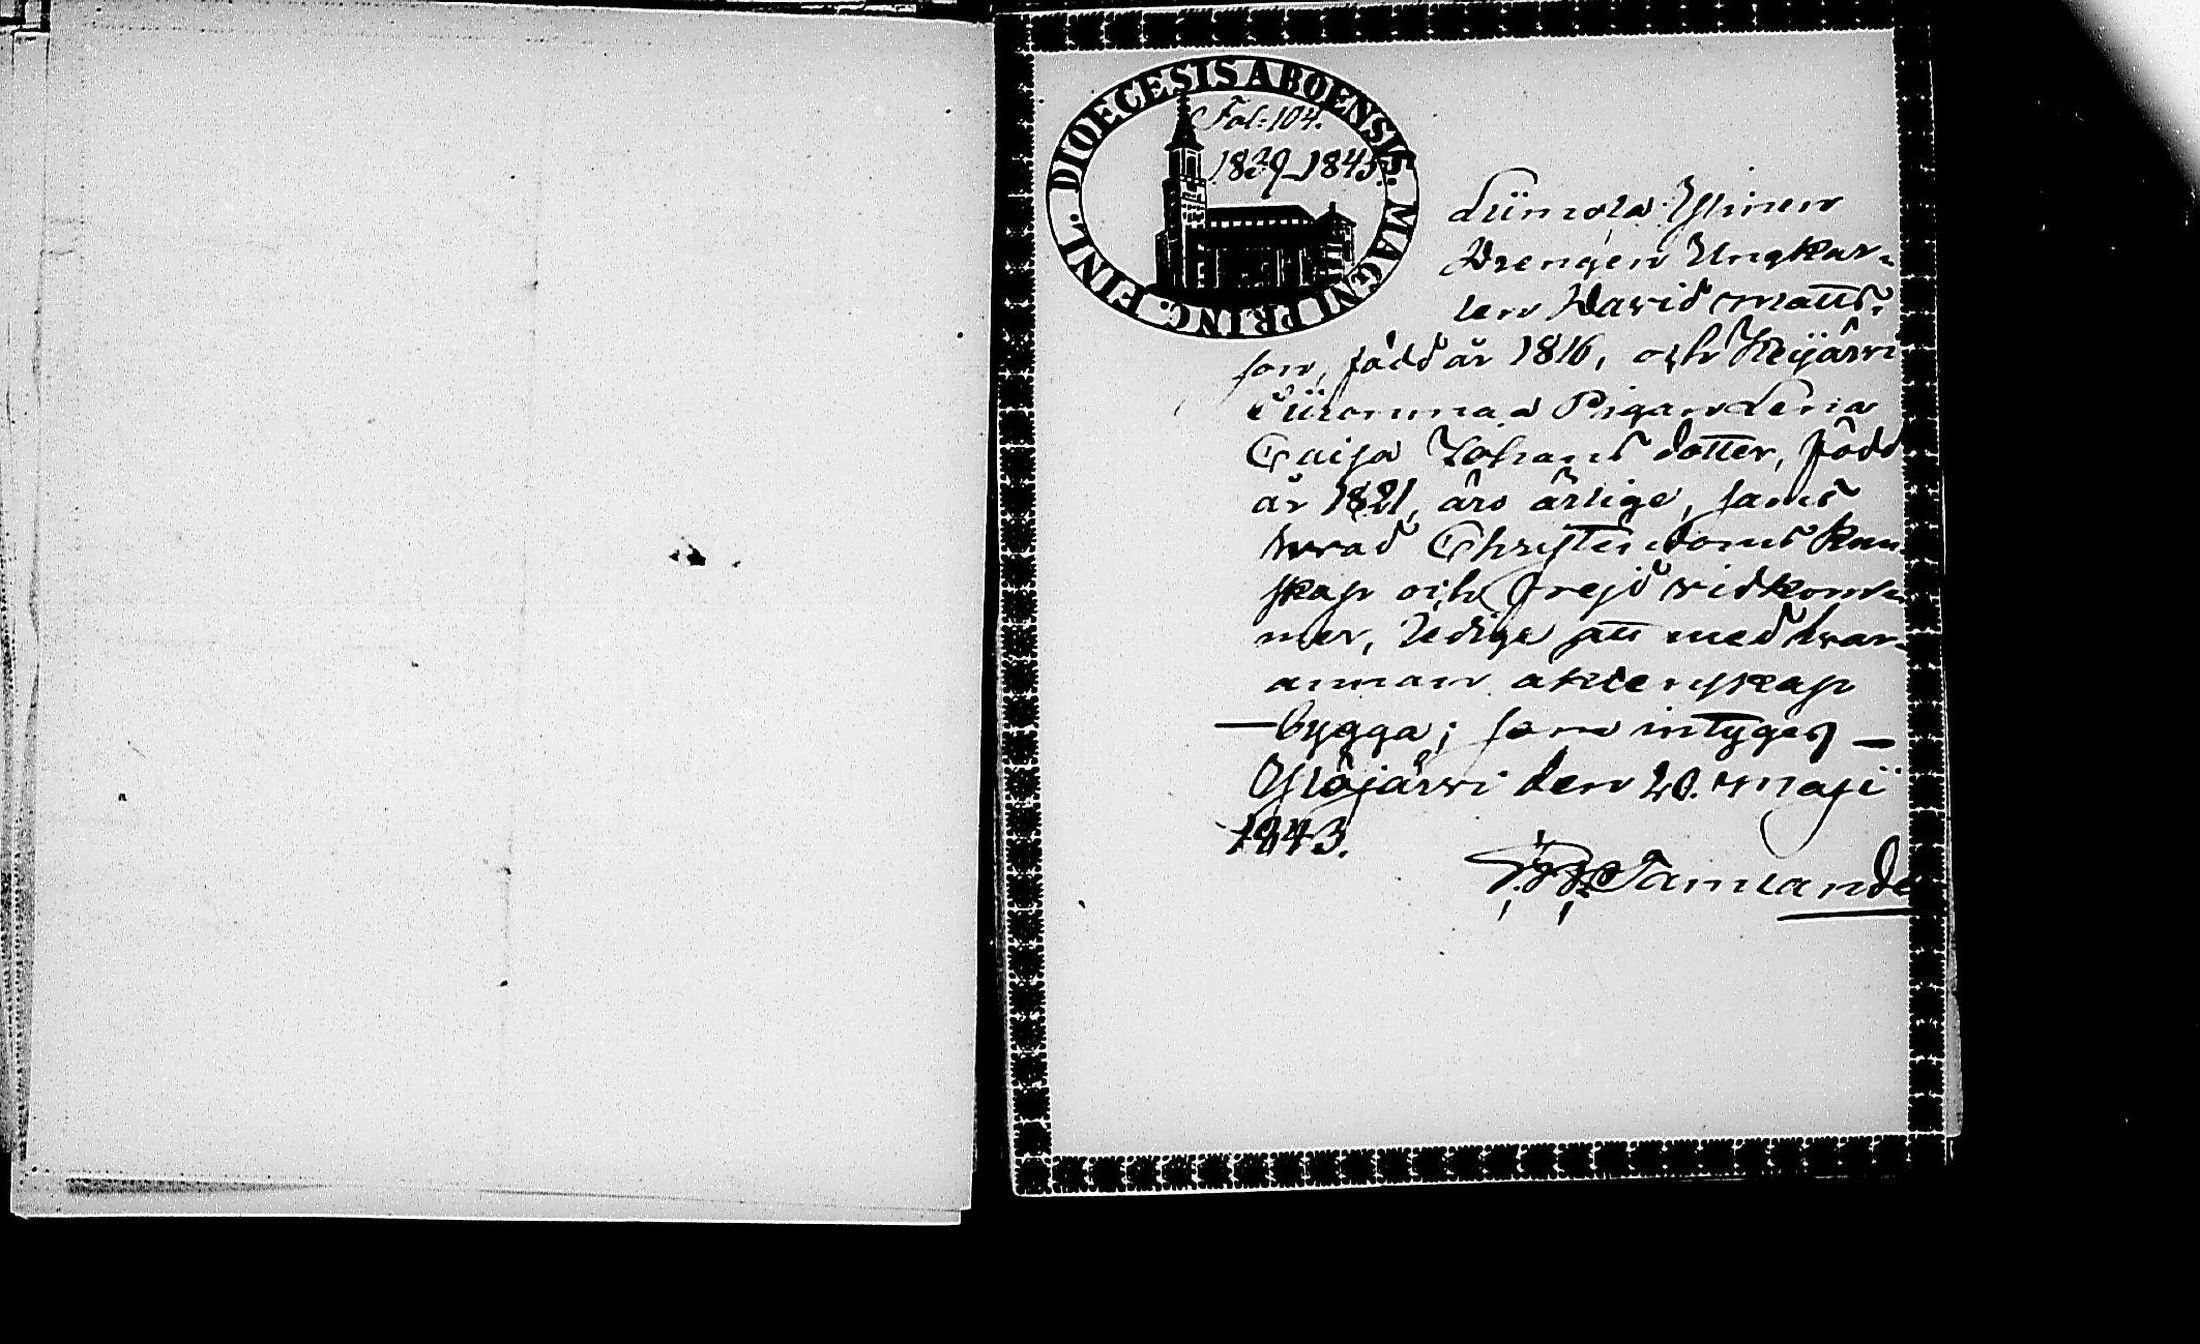 DIOECESIS ABOENSIS. MAGNI PRINC. FINL.
Fol: 104.
1839-1845.
Drengen Ungkar-
len David Matts-
son, född år 1816, och Keijärvi
Pigan Lena
Caisa Johansdotter, född
år 1821, äro ärlige, samt
hvad Christendoms kun-
skap och frejd vidkom-
mer, ledige att med hvar-
annan aktenskap
— bygga; som intygas —
Ylöjärvi den 20. Maji
1843.